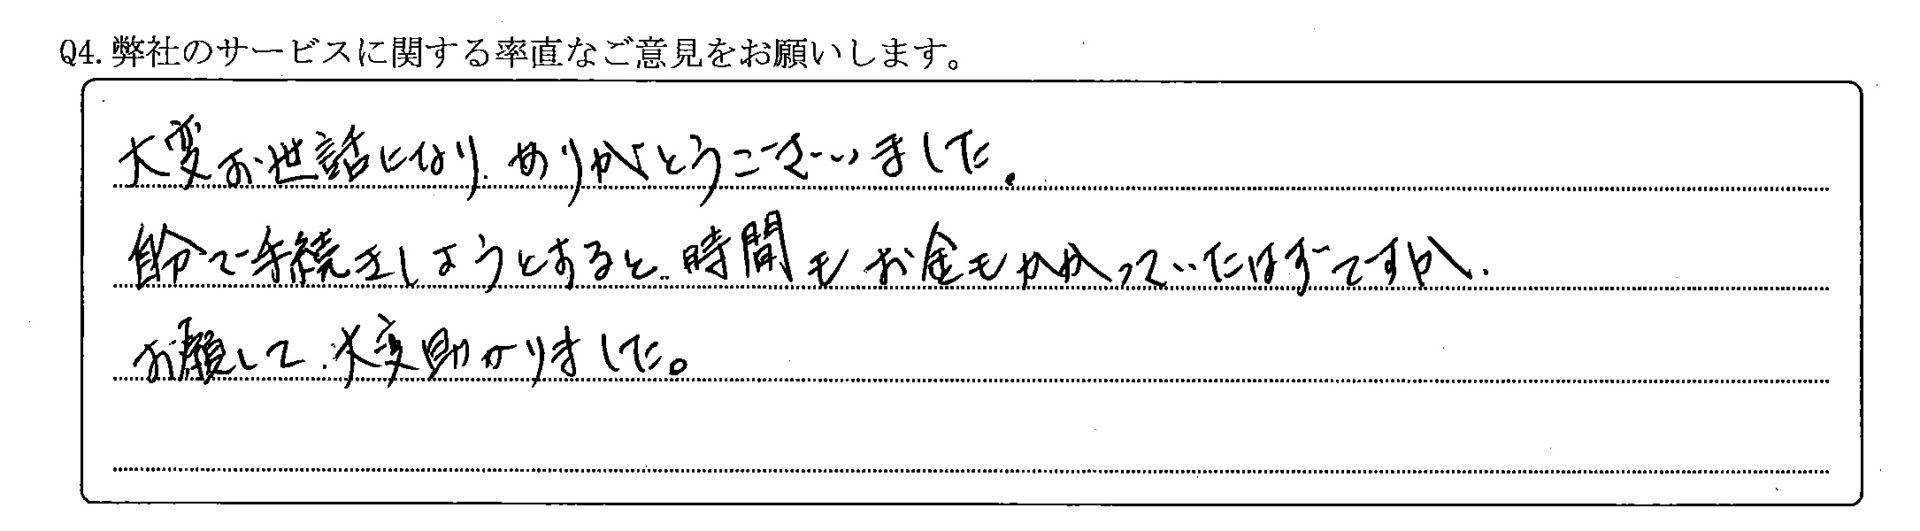 Q4. 弊社のサービスに関する率直なご意見をお願いします。
大変お世話になり、ありがとうございました。
自分で手続きをしようとすると、時間もお金もかかっていたはずですが、
お願して、大変助かりました。